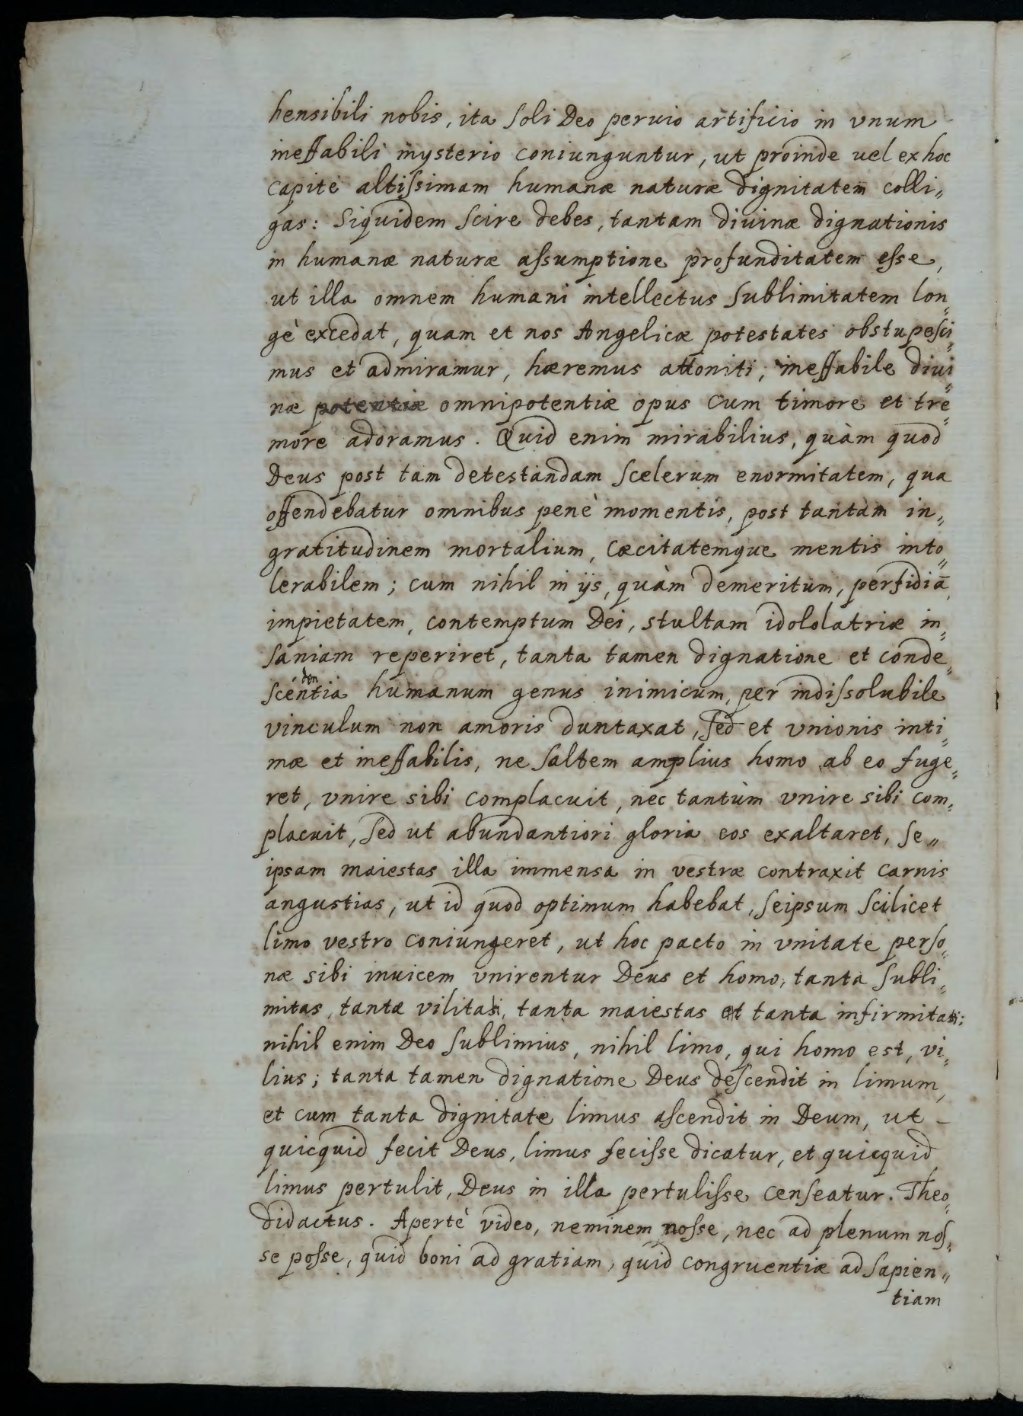 hensibili nobis, ita soli Deo peruio artificio in vnum
ineffabili mysterio coniunguntur, ut proinde uel ex hoc
capite altissimam humanæ naturæ dignitatem colli„
gas: Siquidem scire debes, tantam diuinæ dignationis
in humanæ naturæ assumptione profunditatem esse,
ut illa omnem humani intellectus sublimitatem lon„
gè excedat, quam et nos Angelicæ potestates obstupesci„
mus et admiramur, hæremus attoniti; ineffabile diui„
næ potentiæ omnipotentiæ opus cum timore et tre„
more adoramus. Quid enim mirabilius, quàm quod
Deus post tam detestandam scelerum enormitatem, qua
offendebatur omnibus penè momentis, post tantam in„
gratitudinem mortalium, cæcitatemque mentis into„
lerabilem; cum nihil in ijs, quàm demeritum, perfidiā,
impietatem, contemptum Dei, stultam idololatriæ in„
saniam reperiret, tanta tamen dignatione et conde„
scen
den
tia humanum genus inimicum, per indissolubile
vinculum non amoris duntaxat, sed et vnionis inti„
mæ et ineffabilis, ne saltem amplius homo ab eo fuge„
ret, vnire sibi complacuit, nec tantùm vnire sibi com„
placuit, sed ut abundantiori gloria eos exaltaret, se„
ipsam maiestas illa immensa in vestræ contraxit carnis
angustias, ut id quod optimum habebat, seipsum scilicet
limo vestro coniungeret, ut hoc pacto in vnitate perso„
næ sibi inuicem vnirentur Deus et homo, tanta subli„
mitas, tantæ vilitati, tanta maiestas et tanta infirmitati;
nihil enim Deo sublimius, nihil limo, qui homo est, vi„
lius; tanta tamen dignatione Deus descendit in limum,
et cum tanta dignitate limus ascendit in Deum, ut -
quicquid fecit Deus, limus fecisse dicatur, et quicquid
limus pertulit, Deus in illa pertulisse censeatur. Theo„
didactus. Apertè video, neminem nosse, nec ad plenum nos„
se posse, quid boni ad gratiam, quid congruentiæ ad sapien„
tiam